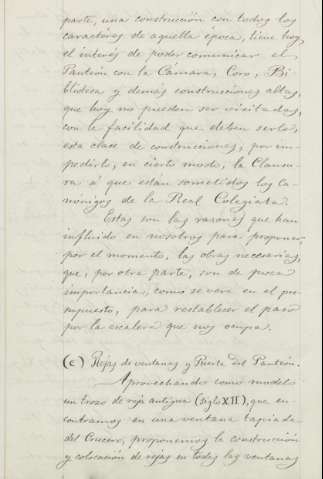 parte, una construcción con todos los
caractéres de aquella época, tiene hoy,
el interés de poder comunicar el
Panteón con la Cámara, Coro, Bi-
blioteca y demás construcciones altas,
que hoy no pueden ser visitadas,
con la facilidad que deben serlo,
esta clase de construcciones, por im-
pedirlo, en cierto modo, la Clausu-
ra á que están sometidos los Ca-
nónigos de la Real Colegiata.
Estas son las razones que han
influido en nosotros para proponer,
por el momento, las obras necesarias,
que, por otra parte, son de poca
importancia, como se verá en el pre-
supuesto, para restablecer el paso
por la escalera que nos ocupa.
(c) Rejas de ventanas y Puerta del Panteón.
Aprovechando como modelo
un trozo de reja antigua (siglo XII), que en-
contramos en una ventana tapiada
del Crucero, proponemos la construcción
y colocación de rejas en todas las ventanas